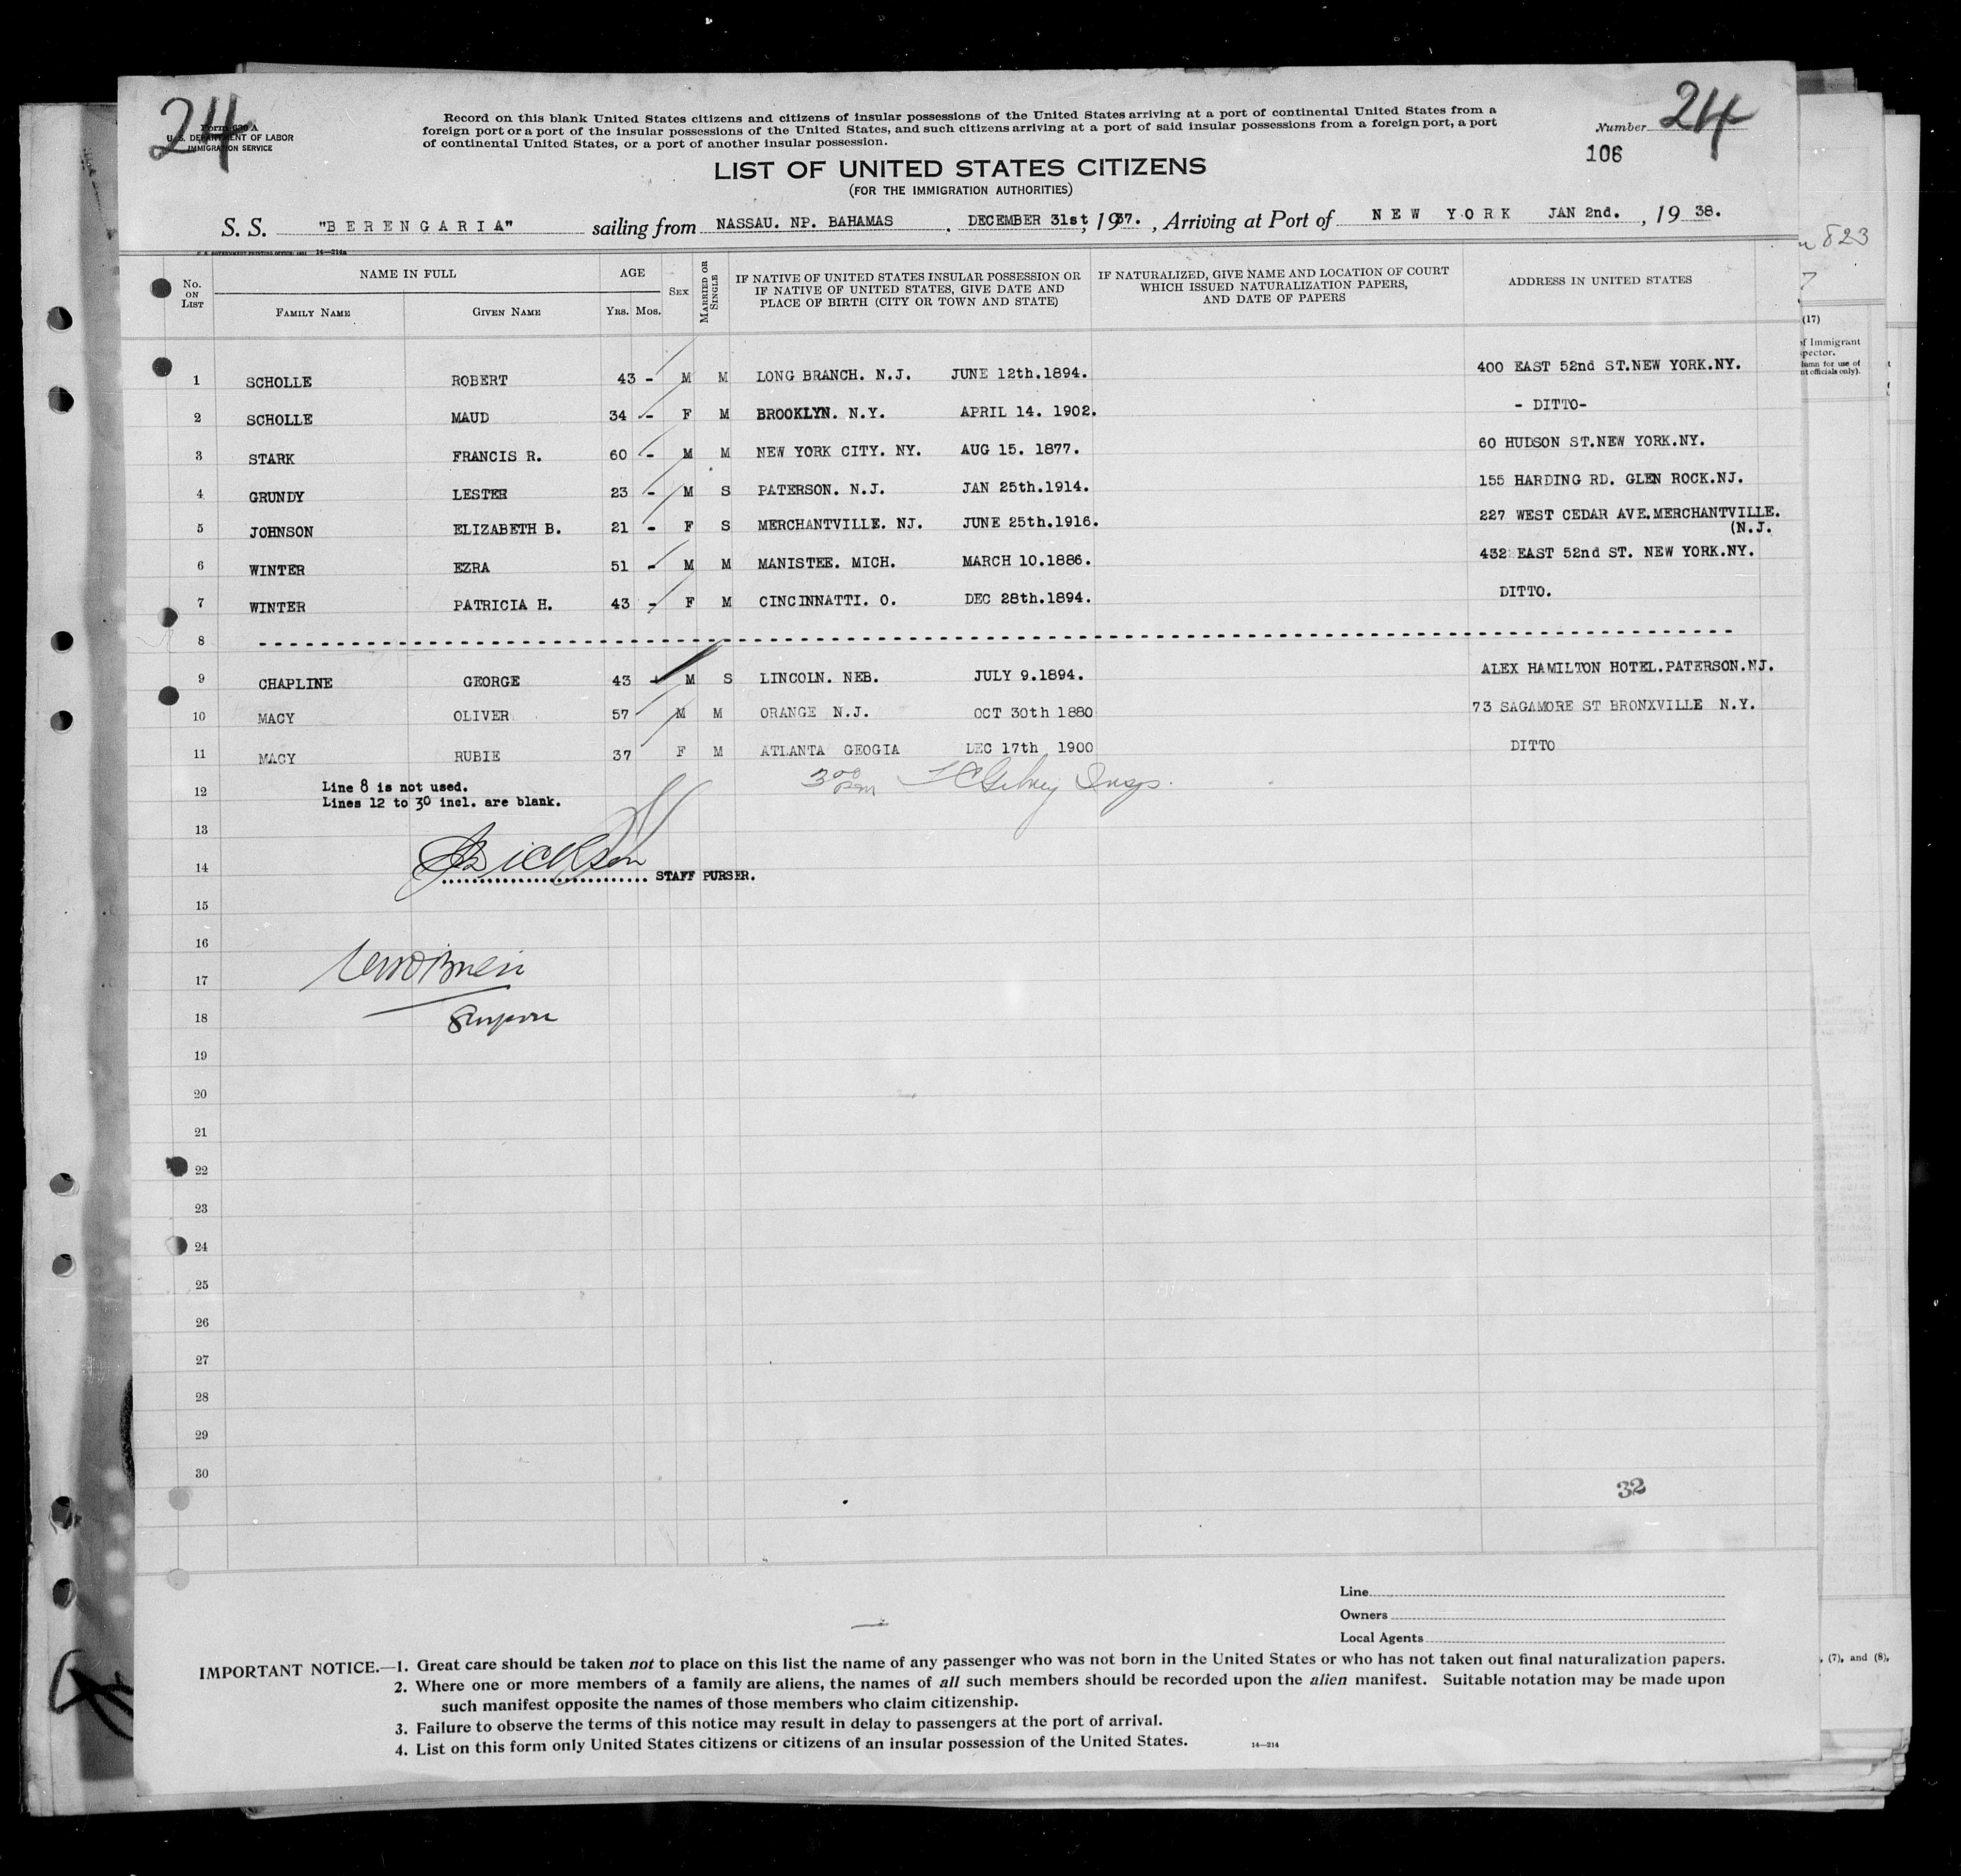 24
24
Form 630 A
U. S. DEPARTMENT OF LABOR
IMMIGRATION SERVICE
Record on this blank United States citizens and citizens of insular possessions of the United States arriving at a port of continental United States from a
foreign port or a port of the insular possessions of the United States, and such citizens arriving at a port of said insular possessions from a foreign port, a port
of continental United States, or a port of another insular possession.
Number
106
LIST OF UNITED STATES CITIZENS
(FOR THE IMMIGRATION AUTHORITIES)
S. S. "BERENGARIA" sailing from NASSAU. NP. BAHAMAS . DECEMBER 31st, 1937. , Arriving at Port of NEW YORK JAN 2nd. , 19 38.
U. S. GOVERNMENT PRINTING OFFICE: 1931 14—214a
No. ON LIST
NAME IN FULL
FAMILY NAME GIVEN NAME
AGE
YRS. MOS.
SEX
MARRIED OR SINGLE
IF NATIVE OF UNITED STATES INSULAR POSSESSION OR
IF NATIVE OF UNITED STATES, GIVE DATE AND
PLACE OF BIRTH (CITY OR TOWN AND STATE)
IF NATURALIZED, GIVE NAME AND LOCATION OF COURT
WHICH ISSUED NATURALIZATION PAPERS,
AND DATE OF PAPERS
ADDRESS IN UNITED STATES
1 SCHOLLE ROBERT 43 - M M LONG BRANCH. N.J. JUNE 12th.1894. 400 EAST 52nd ST.NEW YORK.NY.
2 SCHOLLE MAUD 34 - F M BROOKLYN. N.Y. APRIL 14. 1902. - DITTO-
3 STARK FRANCIS R. 60 - M M NEW YORK CITY. NY. AUG 15. 1877. 60 HUDSON ST.NEW YORK.NY.
4 GRUNDY LESTER 23 - M S PATERSON. N.J. JAN 25th.1914. 155 HARDING RD. GLEN ROCK.NJ.
5 JOHNSON ELIZABETH B. 21 - F S MERCHANTVILLE. NJ. JUNE 25th.1916. 227 WEST CEDAR AVE.MERCHANTVILLE.
(N.J.
6 WINTER EZRA 51 - M M MANISTEE. MICH. MARCH 10.1886. 432 EAST 52nd ST. NEW YORK.NY.
7 WINTER PATRICIA H. 43 - F M CINCINNATTI. O. DEC 28th.1894. DITTO.
8
9 CHAPLINE GEORGE 43 M S LINCOLN. NEB. JULY 9.1894. ALEX HAMILTON HOTEL.PATERSON.NJ.
10 MACY OLIVER 57 M M ORANGE N.J. OCT 30th 1880 73 SAGAMORE ST BRONXVILLE N.Y.
11 MACY RUBIE 37 F M ATLANTA GEOGIA DEC 17th 1900 DITTO
12 Line 8 is not used.
Lines 12 to 30 incl. are blank.
3 00 pm
13
14 STAFF PURSER.
15
16
17
18
19
20
21
22
23
24
25
26
27
28
29
30
32
Line
Owners
Local Agents
IMPORTANT NOTICE.—1. Great care should be taken not to place on this list the name of any passenger who was not born in the United States or who has not taken out final naturalization papers.
2. Where one or more members of a family are aliens, the names of all such members should be recorded upon the alien manifest. Suitable notation may be made upon
such manifest opposite the names of those members who claim citizenship.
3. Failure to observe the terms of this notice may result in delay to passengers at the port of arrival.
4. List on this form only United States citizens or citizens of an insular possession of the United States.
14—214
823
(17)
of Immigrant
, (7), and (8),